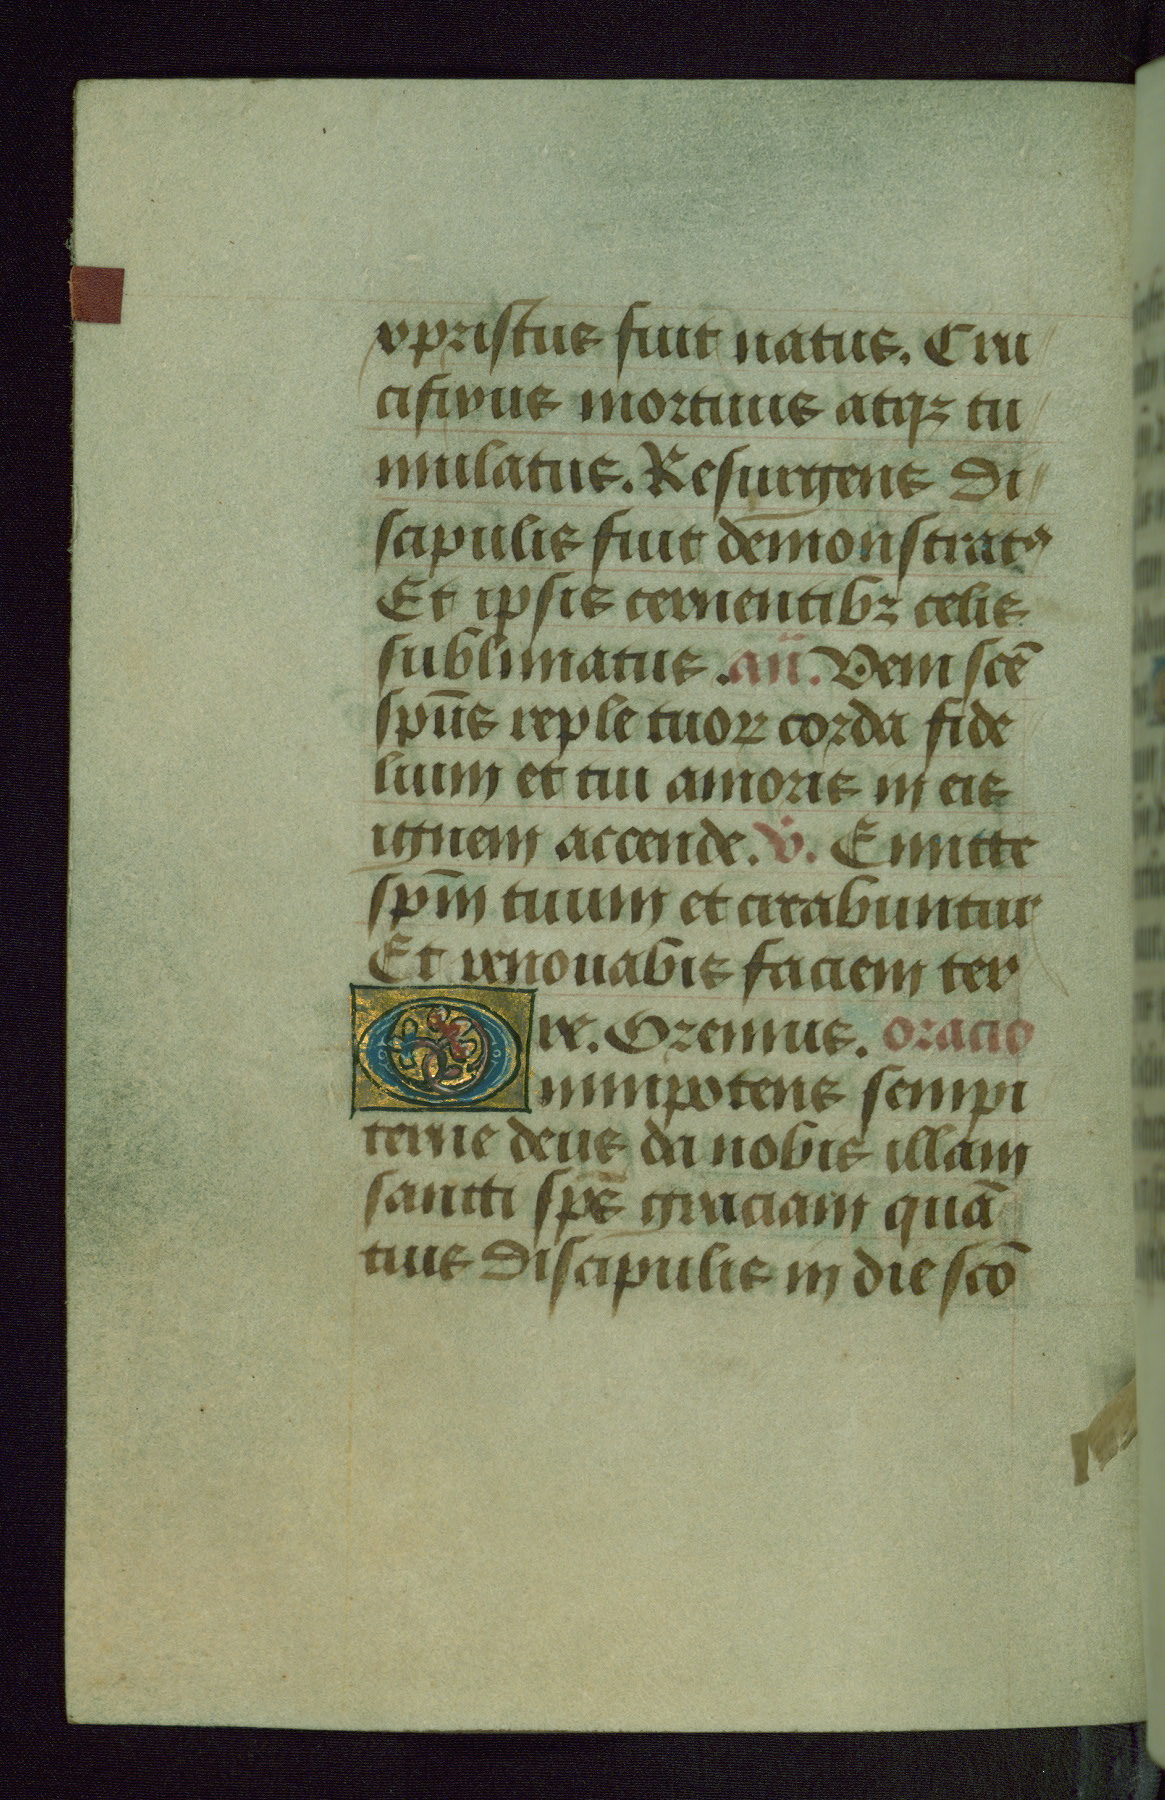 xpristus fuit natus. Cru
cifixus mortuus atqꝫ tu
mulatus. Resurgens di
scipulis fuit demonstratꝰ
Et ipsis cernentibꝫ celis
sublimatus. añ. Veni scē
spūs reple tuoꝝ corda fide
lium et tui amoris in eis
ignem accende. v̄. Emitte
spm̄ tuum et creabuntur
Et renouabis faciem ter
re. Oremus. oracio
Omnipotens sempi
terne deus da nobis illam
sancti spē graciam quā
tuis discipulis in die scō